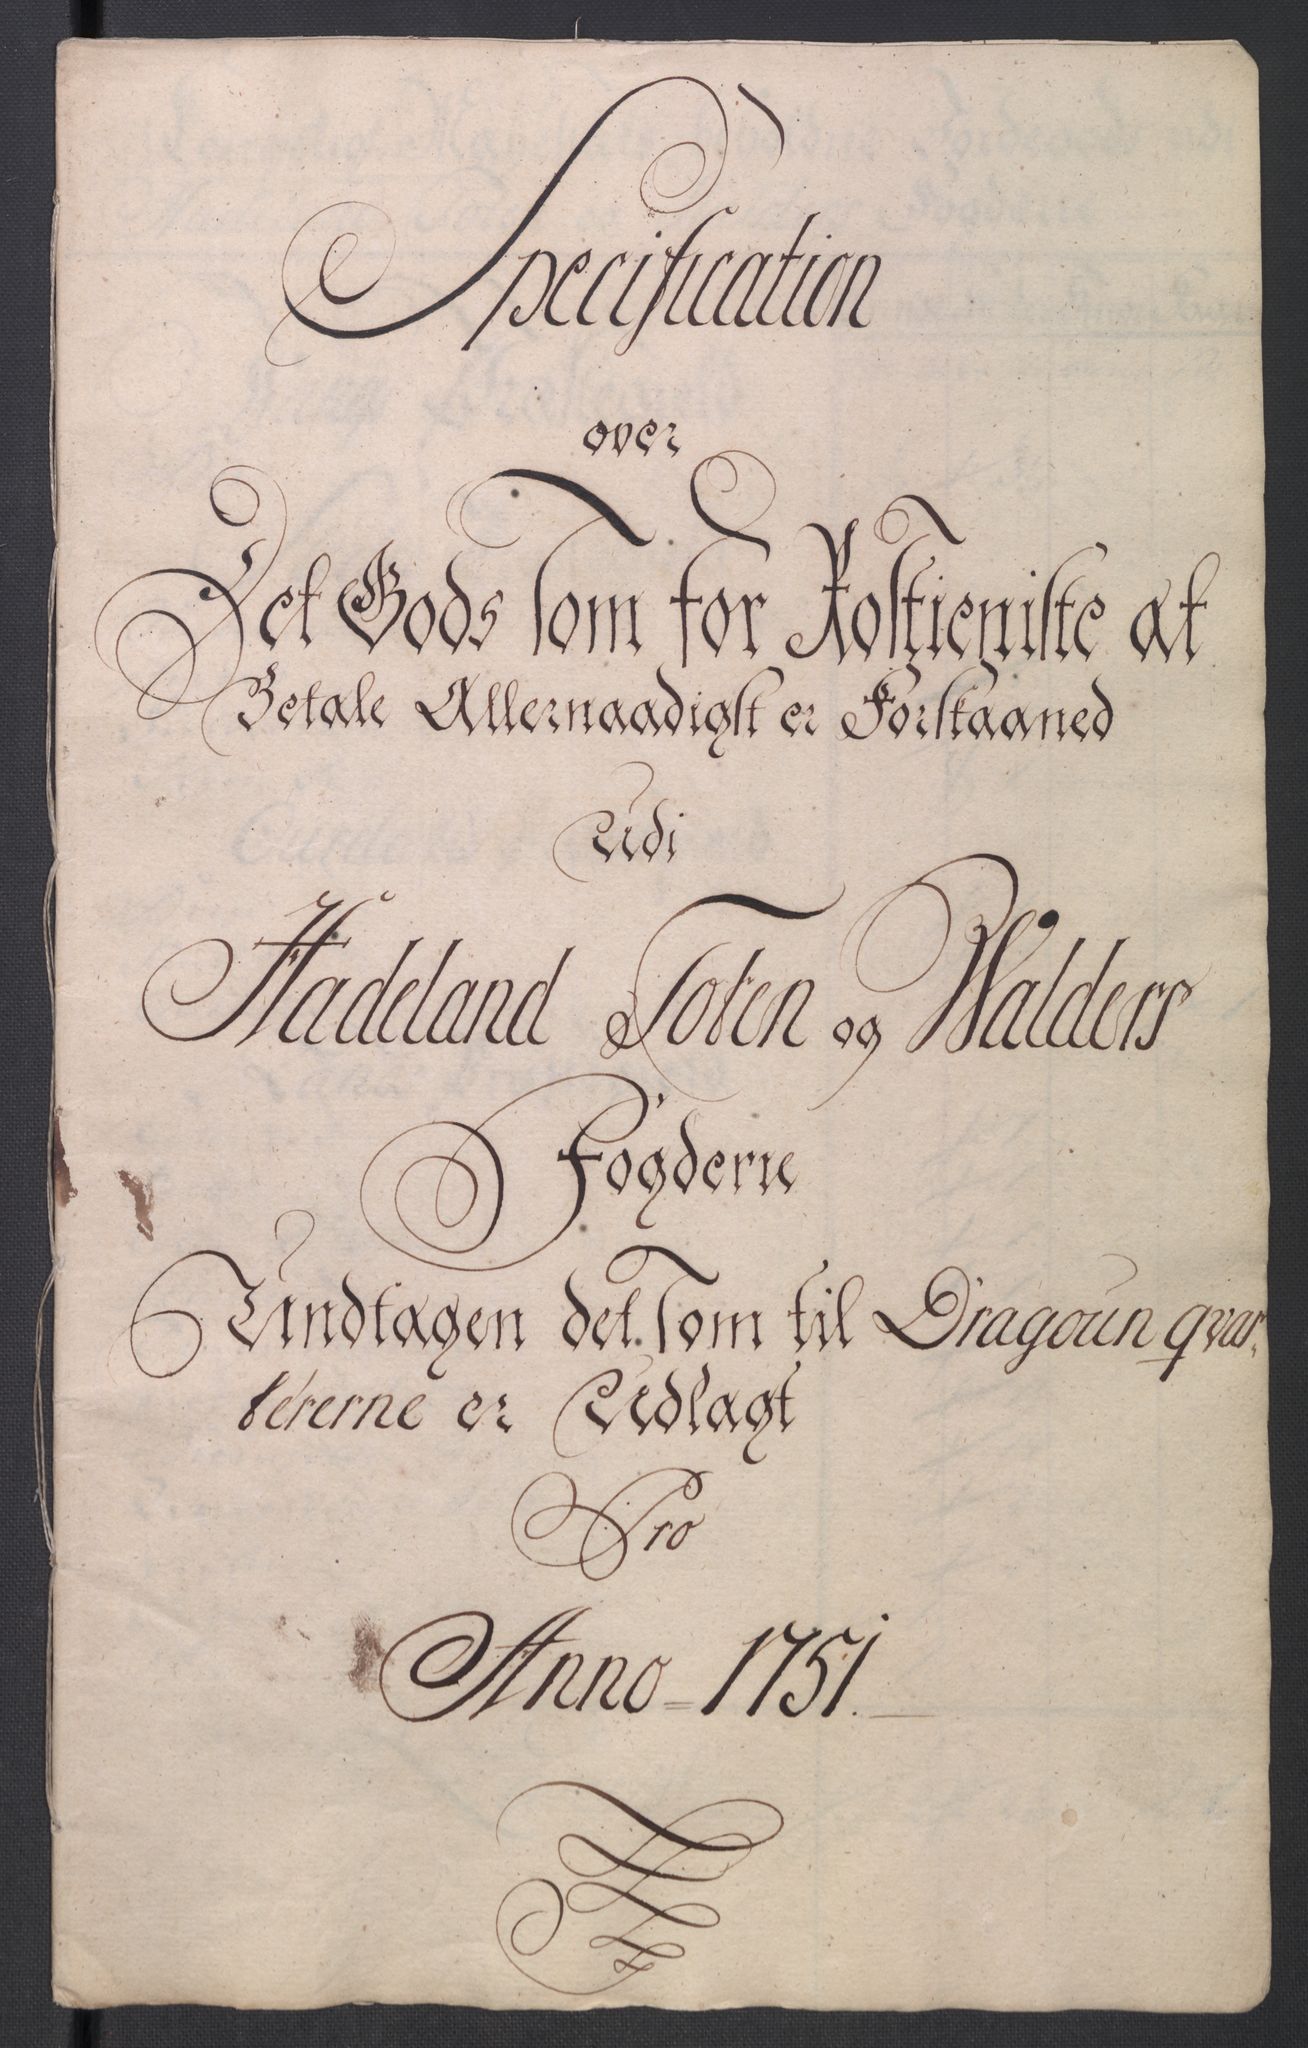 Specification
over
Det Gods som for Rostieniste at
Betale Allernaadigst er Forskaaned
Udi
Hadeland Toten og Walders
Fogderie
Undtagen det som til Dragoun qvar,
tererne er Udlagt
Pro
Anno 1751.